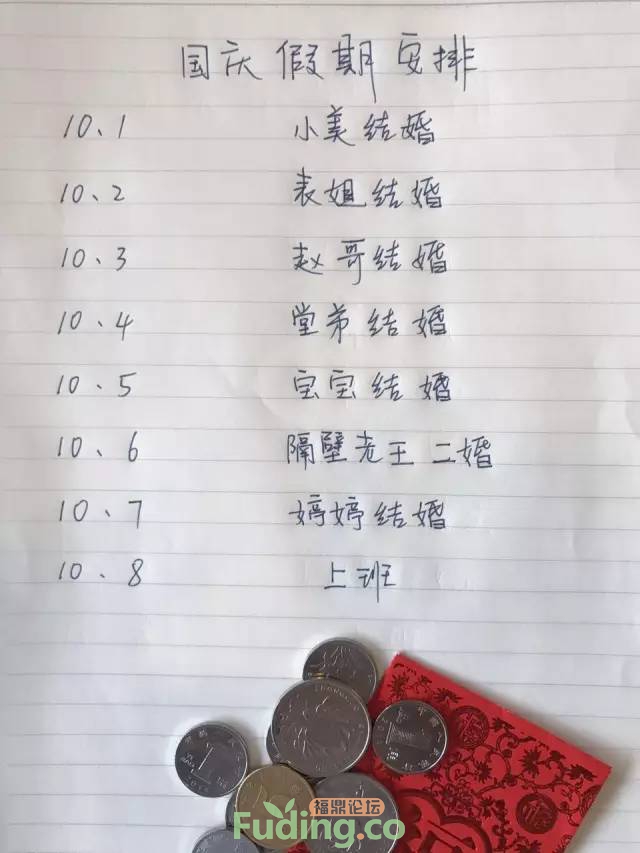 国庆假期安排
10、1 小美结婚
10、2 表姐结婚
10、3 赵哥结婚
10、4 堂弟结婚
10、5 宝宝结婚
10、6 隔壁老王二婚
10、7 婷婷结婚
10、8 上班
1
1
福鼎论坛
Fuding.co